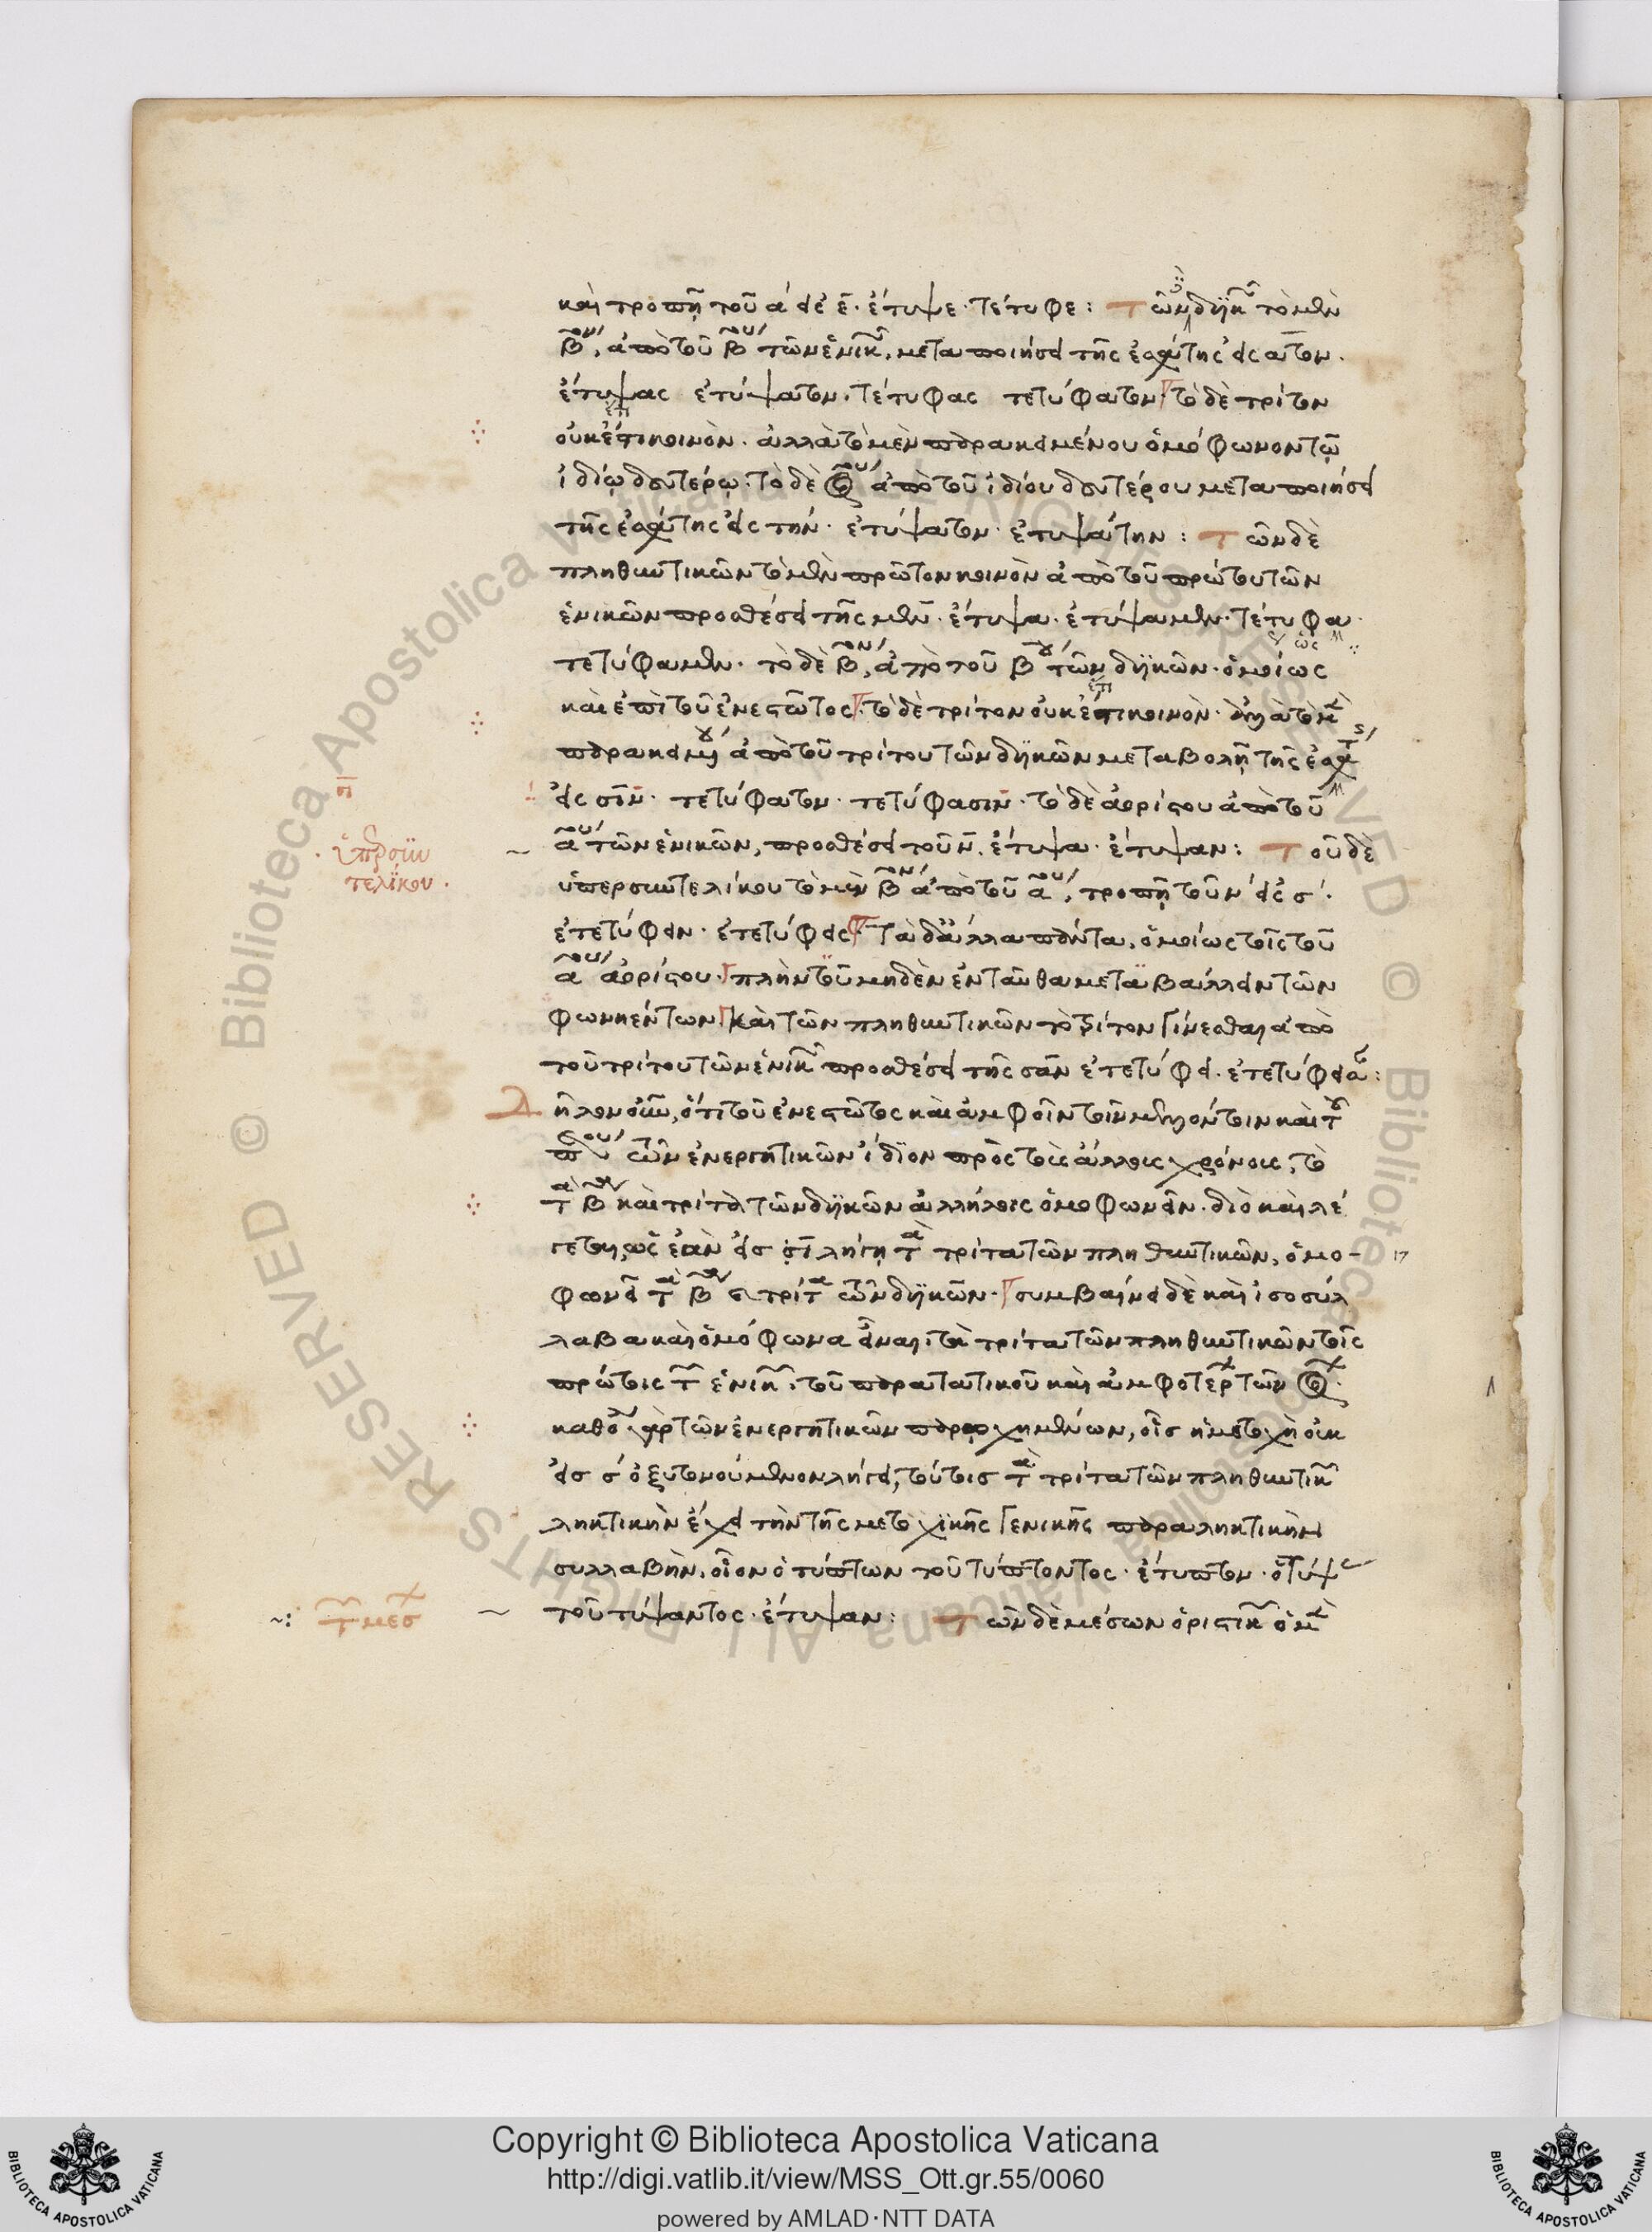 καὶ τροπῇ τοῦ α εἰς ε̄. ἔτυψε. τέτυφε: Τῶν δυϊκ τὸ μὲν
β^ον, ἀπὸ τοῦ β^ου τῶν ἑνικ, μεταποιήσει τῆς ἐσχάτης εἰς ατον.
ἔτυψας ἐτύψατον. τέτυφας τετύφατον. τὸ δὲ τρίτον
οὐκ ἐπικοινὸν. ἀλλὰ τὸ μὲν παρακειμένου ὁμόφωνον τῷ
ἰδίῳ δευτέρῳ. τὸ δὲ ἀπὸ τοῦ ἰδίου δευτέρου μεταποιήσει
τῆς ἐσχάτης εἰς την. ἐτύψατον. ἐτυψάτην: Τῶν δὲ
πληθυντικῶν τὸ μὲν πρῶτον κοινὸν ἀπὸ τοῦ πρώτου τῶν
ἑνικῶν προσθέσει τῆς μεν. ἔτυψα. ἐτύψαμεν. τέτυφα.
τετύφαμεν. τὸ δὲ β^ον, ἀπὸ τοῦ β^ου τῶν δυϊκῶν. ὁμοίως
καὶ ἐπὶ τοῦ ἐνεστῶτος. τὸ δὲ τρίτον οὐκ ἐπικοινὸν. ἀλλὰ τὸ μ
παρακειμ ἀπὸ τοῦ τρίτου τῶν δυϊκῶν μεταβολῇ τῆς ἐσχατ
εἰς σῖν. τετύφατον. τετύφασιν. τὸ δὲ ἀορίστου ἀπὸ τοῦ
α^ου τῶν ἑνικῶν, προσθέσει τοῦ ν̄. ἔτυψα. ἔτυψαν: Τοῦ δὲ
ὑπερσυν
τελίκου.
ὑπερσυντελίκου τὸ μὲν β^ον ἀπὸ τοῦ α^ου, τροπῇ τοῦ ν εἰς σ.
ἐτετύφειν. ἐτετύφεις. Τὰ δ' ἄλλα πάντα, ὁμοίως τοῖς τοῦ
α^ου ἀορίστου. πλὴν τοῦ μηδὲν ἐνταῦθα μεταβάλλειν τῶν
φωνηέντων. καὶ τῶν πληθυντικῶν τὸ τρίτον γίνεσθαι ἀπὸ
τοῦ τρίτου τῶν ἑνικ προσθέσει τῆς σαν ἐτετύφει. ἐτετύφεισαν:
Δῆλον οὖν, ὅτι τοῦ ἐνεστῶτος καὶ ἀμφοῖν τοῖν μελλόντοιν καὶ τ
τῶν ἐνεργητικῶν ἴδιον πρὸς τοῖς ἄλλοις χρόνοις, τὸ
τὰ β καὶ τρίτα τῶν δυϊκῶν ἀλλήλοις ὁμοφωνεῖν. διὸ καὶ λέ
γεται, ὡς ἐὰν εἰς σι λήγῃ τὰ τρίτα τῶν πληθυντικῶν, ὁμο-
φωνεῖ τὰ β κ τρίτα τῶν δυϊκῶν. συμβαίνει δὲ καὶ ἰσοσύλ
λαβα καὶ ὁμόφωνα εἶναι, τὰ τρίτα τῶν πληθυντικῶν τοῖς
πρώτοις τ ἑνικ. τοῦ παρατατικοῦ καὶ ἀμφοτέρ τῶν
καθό γὰρ τῶν ἐνεργητικῶν παρῳχημένων, οἷς ἡ μετοχὴ οὐκ
εἰς σ ὀξυτονούμενον λήγει, τούτοις τὰ τρίτα τῶν πληθυντικ
ληκτικὴν ἔχει τὴν τῆς μετοχικῆς γενικῆς παραληκτικὴν
συλλαβήν. οἷον ὁ τύπτων τοῦ τύπτοντος. ἔτυπτον. ὁ τύψ
τοῦ τύψαντος. ἔτυψαν: Τῶν δὲ μέσων ὁριστικ ὁ μ
τ μεσ
Copyright © Biblioteca Apostolica Vaticana
http://digi.vatlib.it/view/MSS_Ott.gr.55/0060
powered by AMLAD·NTT DATA